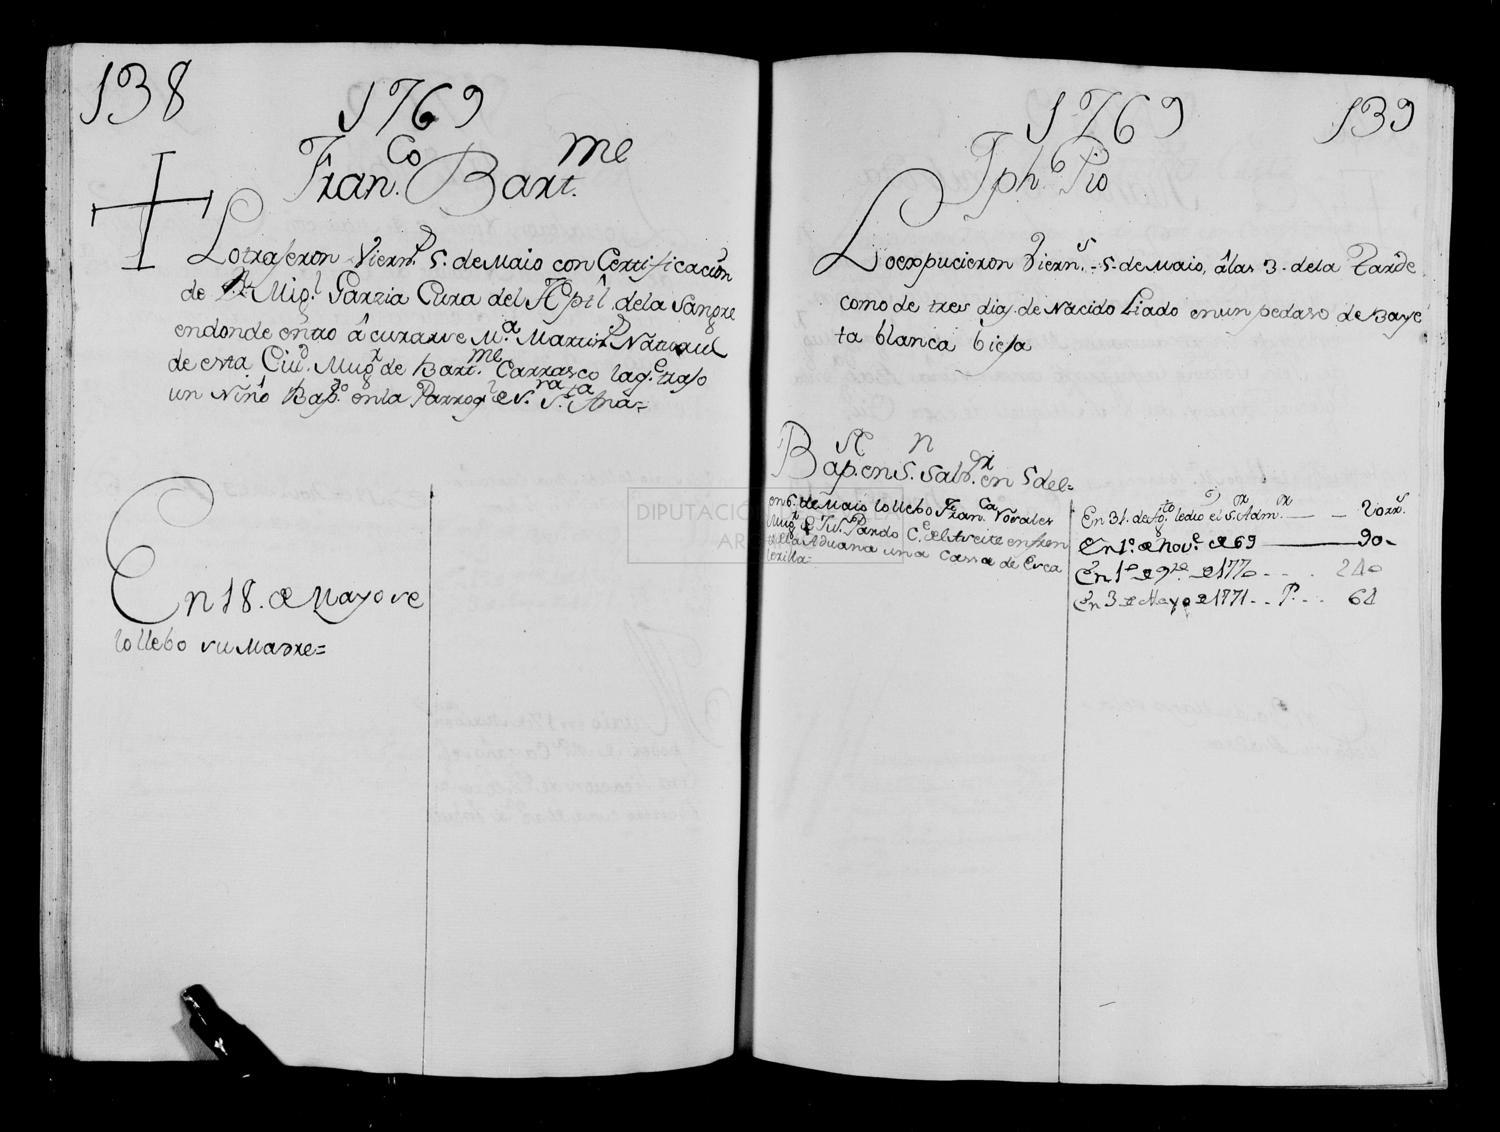 138
1769
Fran.co Bart.me
Lo trajeron Viern.s 5. de Maio con Certificacion
de D.n Mig.l Garzia Cura del Hospi.l dela Sangre
endonde entro â curarse M.a Martin Natural
de esta Ciud. Mug.r de Bart.me Carrasco laq.e trajo
un Niño Bap.do en la Parroq.l de S.ra S.ta Ana=
En 18. de Mayo se
lo llebo su Madre=
1769
139
Jph. Pio
Lo expucieron Viern.s 5. de Maio, âlas 3. dela Tarde
como de tres dias. de Nacido Liado en un pedaso de Baye
ta blanca bieja
Bap. en S. Salv.or en 5 del=
en 6. de Maio lo llebo Fran.ca Novales
Mug.r de Pardo C.e del Aseite enfren
Aduana una Cassa de Esca
lerilla=
En 31. de Ag.to ledio el S.or Adm.or — — 20 rr.s
En 1.o de Nov.e de 69 — 90-
En 1.o de 9.re de 1770 - - - 240
En 3 de Mayo de 1771 - - P. - - 64
DIPUTACIÓN